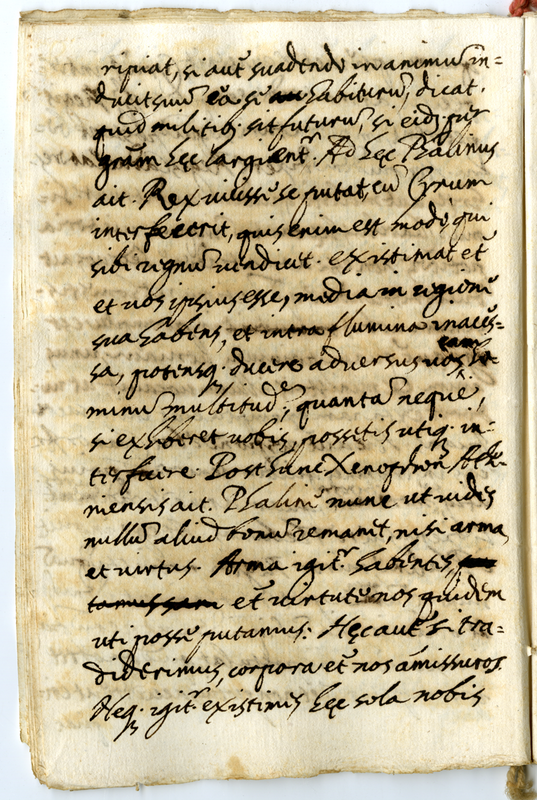 ripiat, si aut̄ suadendo in animū in-
ducit suū ea se habiturū, dicat,
quid militibꝫ sit futurū, si eidꝫ
hęc largient.ʳ Ad hęc Phalinus
ait. Rex vicisse se putat, cū Cyrum
interfecerit, quis enim est modo, qui
sibi regnū vendicet. existimat et̄
et vos ipsius esse, media in regione
sua habens, et intra flumina inaces-
sa, potensqꝫ ducere adversus vos tam ho-
minū multitudᵉ, quantā neque,
si exhiberet vobis, possetis utiqꝫ in-
terficere. Post hunc Xenophon Athe-
niensis ait. Phaline nunc ut vides
nullū aliud bonū remanet, nisi arma,
et virtus. Arma igit.ʳ habentes,
et̄ virtute nos quidem
uti posse putamus. Hęc aut̄ si tra-
diderimus, corpora et̄ nos amissuros.
Neqꝫ igit.ʳ existimes hęc sola nobis